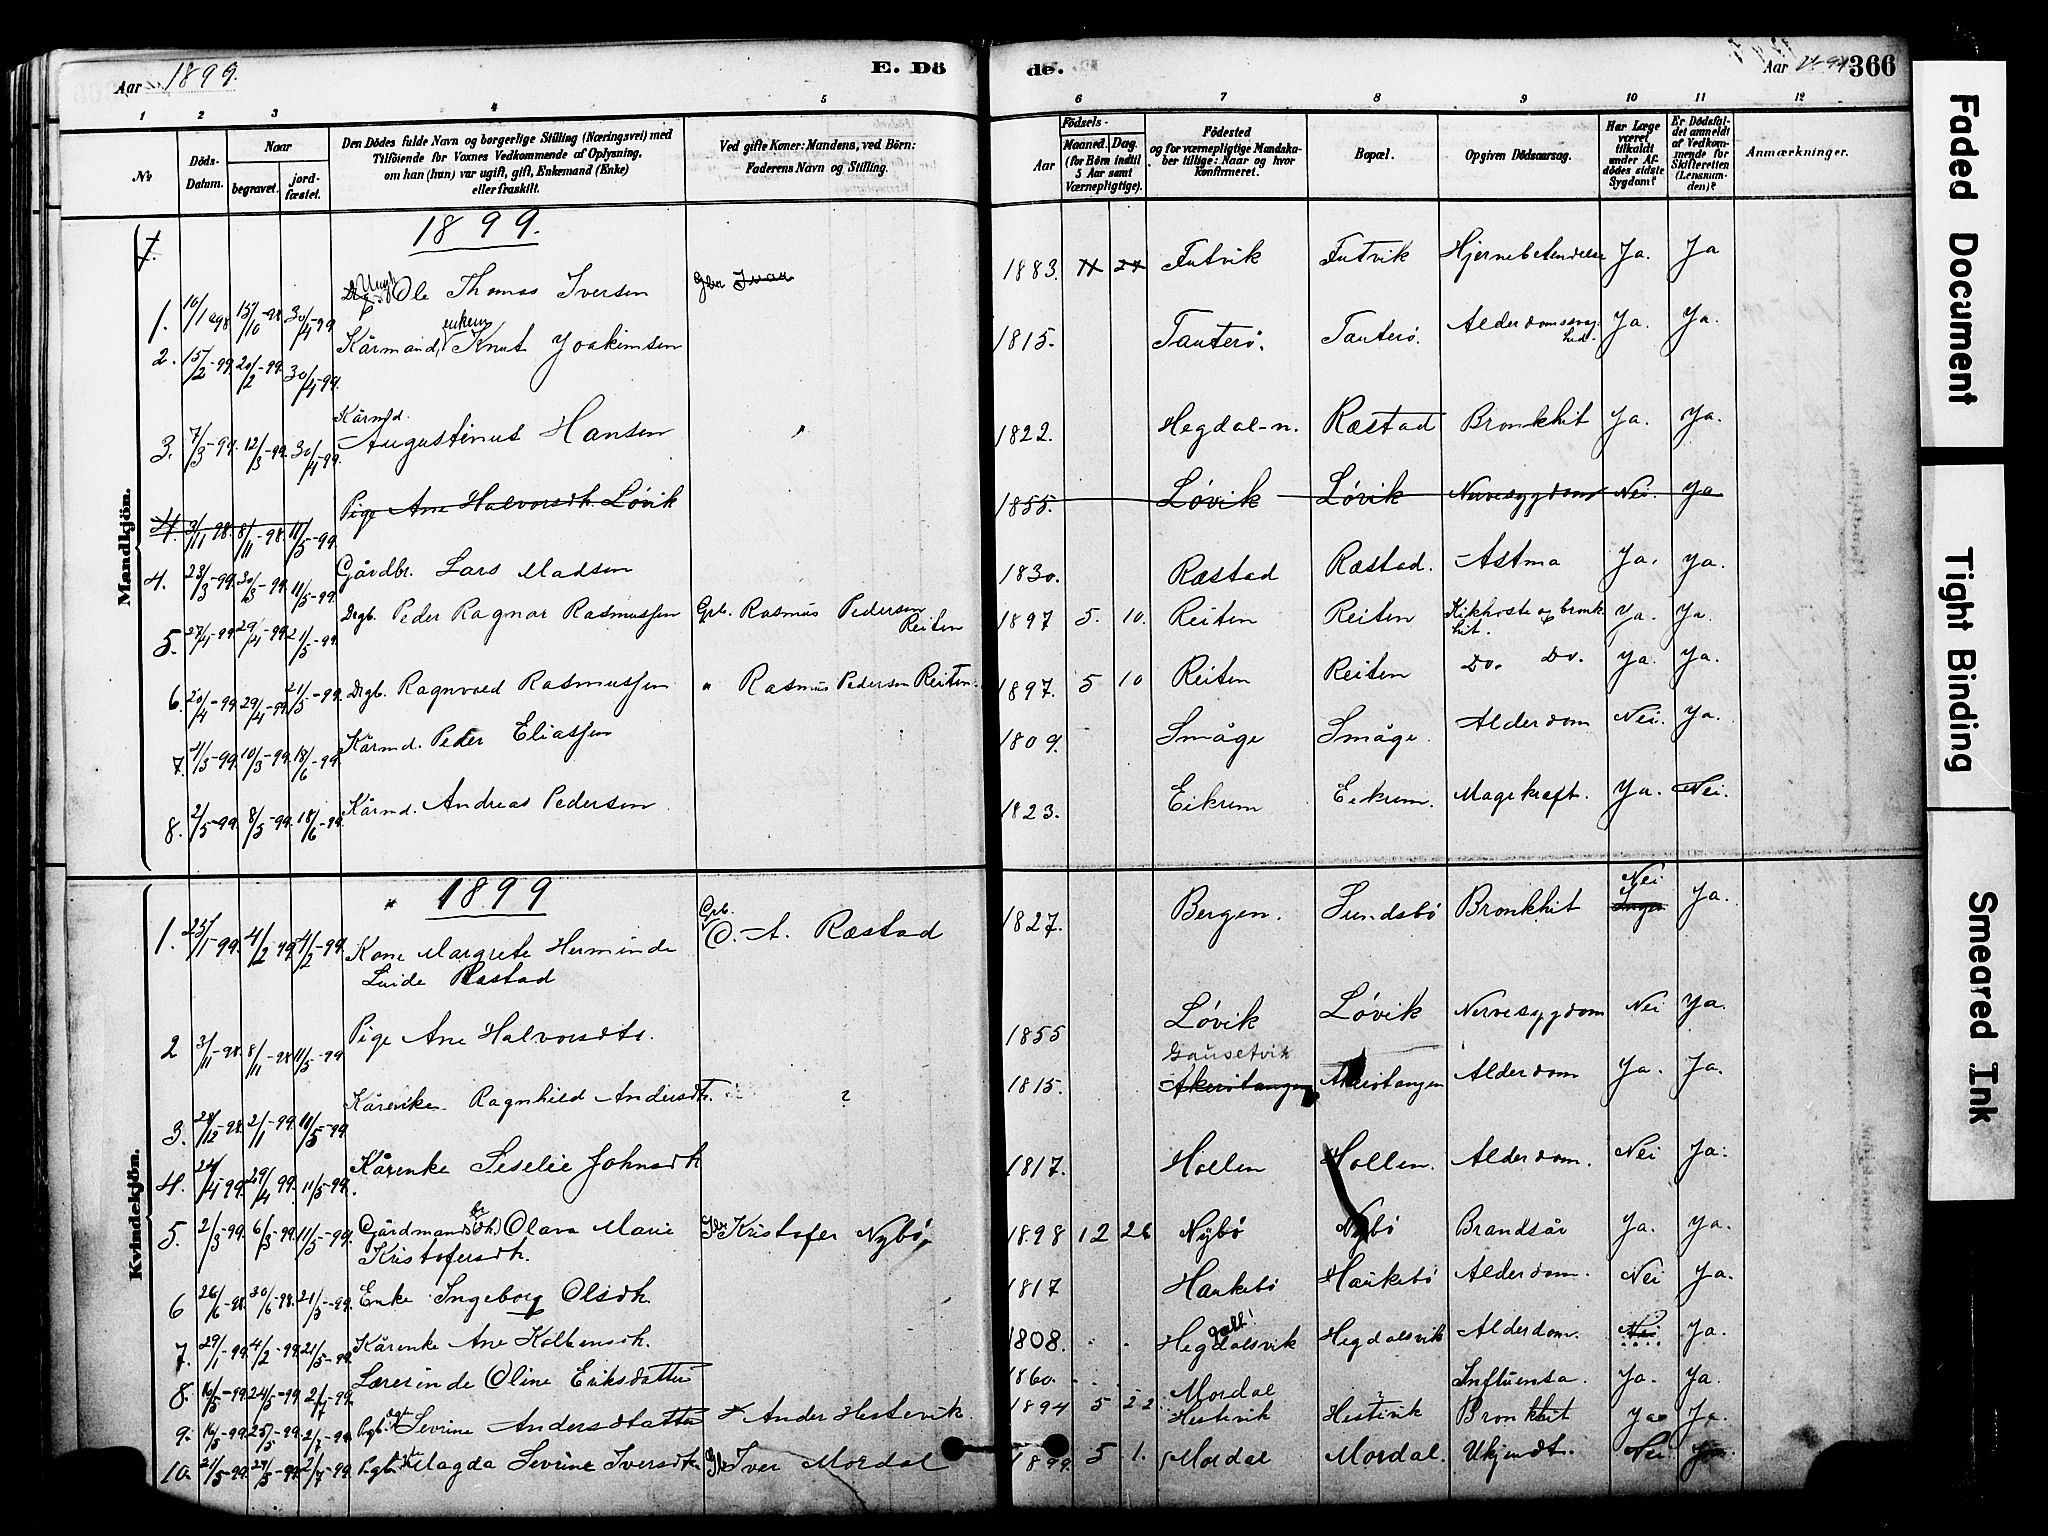 Aar 1899.
E. Dö
de.
Aar
366
1 2 3 4 5 6 7 8 9 10 11 12
No
Döds-Datum.
Naar
begravet.
jord-fæstet.
Den Dödes fulde Navn og borgerlige Stilling (Næringsvei) med
Tilföiende for Voxnes Vedkommende af Oplysning,
om han (hun) var ugift, gift, Enkemand (Enke)
eller fraskilt.
Ved gifte Koner: Mandens, ved Börn:
Faderens Navn og Stilling.
Födsels-
Aar
Maaned. Dag.
(for Börn indtil
5 Aar samt
Værnepligtige).
Födested
og for værnepligtige Mandska-
ber tillige: Naar og hvor
konfirmeret.
Bopæl.
Opgiven Dödsaarsag.
Har Læge
været
tilkaldt
under Af-
dödes sidste
Sygdom?
Er Dödsfal-
det anmeldt
af Vedkom-
mende for
Skifteretten
(Lensman-
den)?
Anmærkninger.
Mandkjön.
1899.
1. 30/4-99 Ole Thomas Iversen Gbr Ivar 1883. Futvik Futvik Hjernebetendelse Ja. Ja
2. 15/2-99. 20/2-99. 30/4-99. Kårmand, enkem Knut Joakimsen 1815. Tauterø. Tauterø. Ja. Ja.
3. 7/3-99. 12/3-99. 30/4-99. Kårmd. Augustinus Hansen 1822. Hegdal-n. Ræstad Bronkhit Ja. Ja.
4. 3/11-98. 8/11-98. 11/5-99. Pige Ane Halvorsdtr. Løvik 1855. Løvik Løvik Nervesygdom Nei. Ja
4. 23/3-99. 30/3-99. 11/5-99. Gårdbr. Lars Madsen 1830. Ræstad Ræstad. Astma Ja. Ja.
5. 27/4-99. 29/4-99. 21/5-99. Drgb. Peder Ragnar Rasmussen Grb. Rasmus Pedersen Reiten 1897 5. 10. Reiten Reiten Kikhoste og bronkhit. Ja. Ja.
6. 20/4-99. 29/4-99. 21/5-99. Drgb. Ragnvald Rasmussen " Rasmus Pedersen Reiten. 1897. 5 10 Reiten Reiten Do. Do. Ja. Ja.
7. 10/3-99. 18/6-99. Kårmd. Peder Eliassen 1809. Småge Småge. Alderdom Nei. Ja.
8. 2/5-99. 8/5-99. 18/6-99. Kårmd. Andreas Pedersen 1823. Eikrem Eikrem. Magekræft. Ja. Nei.
Kvindekjön.
" 1899
1. 25/1-99. 4/2-99. 4/2-99. Kone Margrete Herminde Ræstad Grb. O. A. Ræstad 1827. Bergen. Sundsbö Bronkhit Nei Ja.
2 3/11-98. 8/11-98. 11/5-99 Pige Ane Halvorsdtr. 1855 Løvik Løvik Nervesygdom Nei Ja.
3. 28/12-98. 2/1-99. 11/5-99. Kårenke Ragnhild Andersdtr. ? 1815. Gausetvik Akerötangen Akerötangen Alderdom Ja. Ja.
4. 24/4-99. 29/4-99. 11/5-99. Kårenke Seselie Johnsdtr 1817. Hollen Hollen. Alderdom. Nei Ja.
5. 2/3-99. 6/3-99. 11/5-99. Gårdmands Olava Marie Kristofersdtr. Kristofer Nybö, 1898 12 26 Nybö Nybö Brandsår Ja. Ja.
6 26/6-98. 30/6-98. Enke Ingeborg Olsdtr. 1817 Haukebö Haukebö Alderdom. Nei Ja.
7. 29/1-99. 4/2-99. 21/5-99. Kårenke Ane Kolbensdtr. 1808. Hegdalsvik Hegdalsvik Alderdom. Nei Ja.
8. 16/5-99. 24/5-99. 2/7-99. Lærerinde Oline Eriksdatter 1860. Mordal Influensa. Ja. Ja.
9. 16/5-99. 25/5-99. 2/7-99. Sevrine Andersdatter Ander Hestevik. 1894 5 22 Hestevik Hestevik Bronkhit Ja Ja.
10. 21/5-99. 27/5-99. 2/7-99. Magda Sevrine Iversdtr Iver Mordal 1899. 5 1. Mordal Mordal. Ukjendt. Nei Ja.
Faded Document
Tight Binding
Smeared Ink